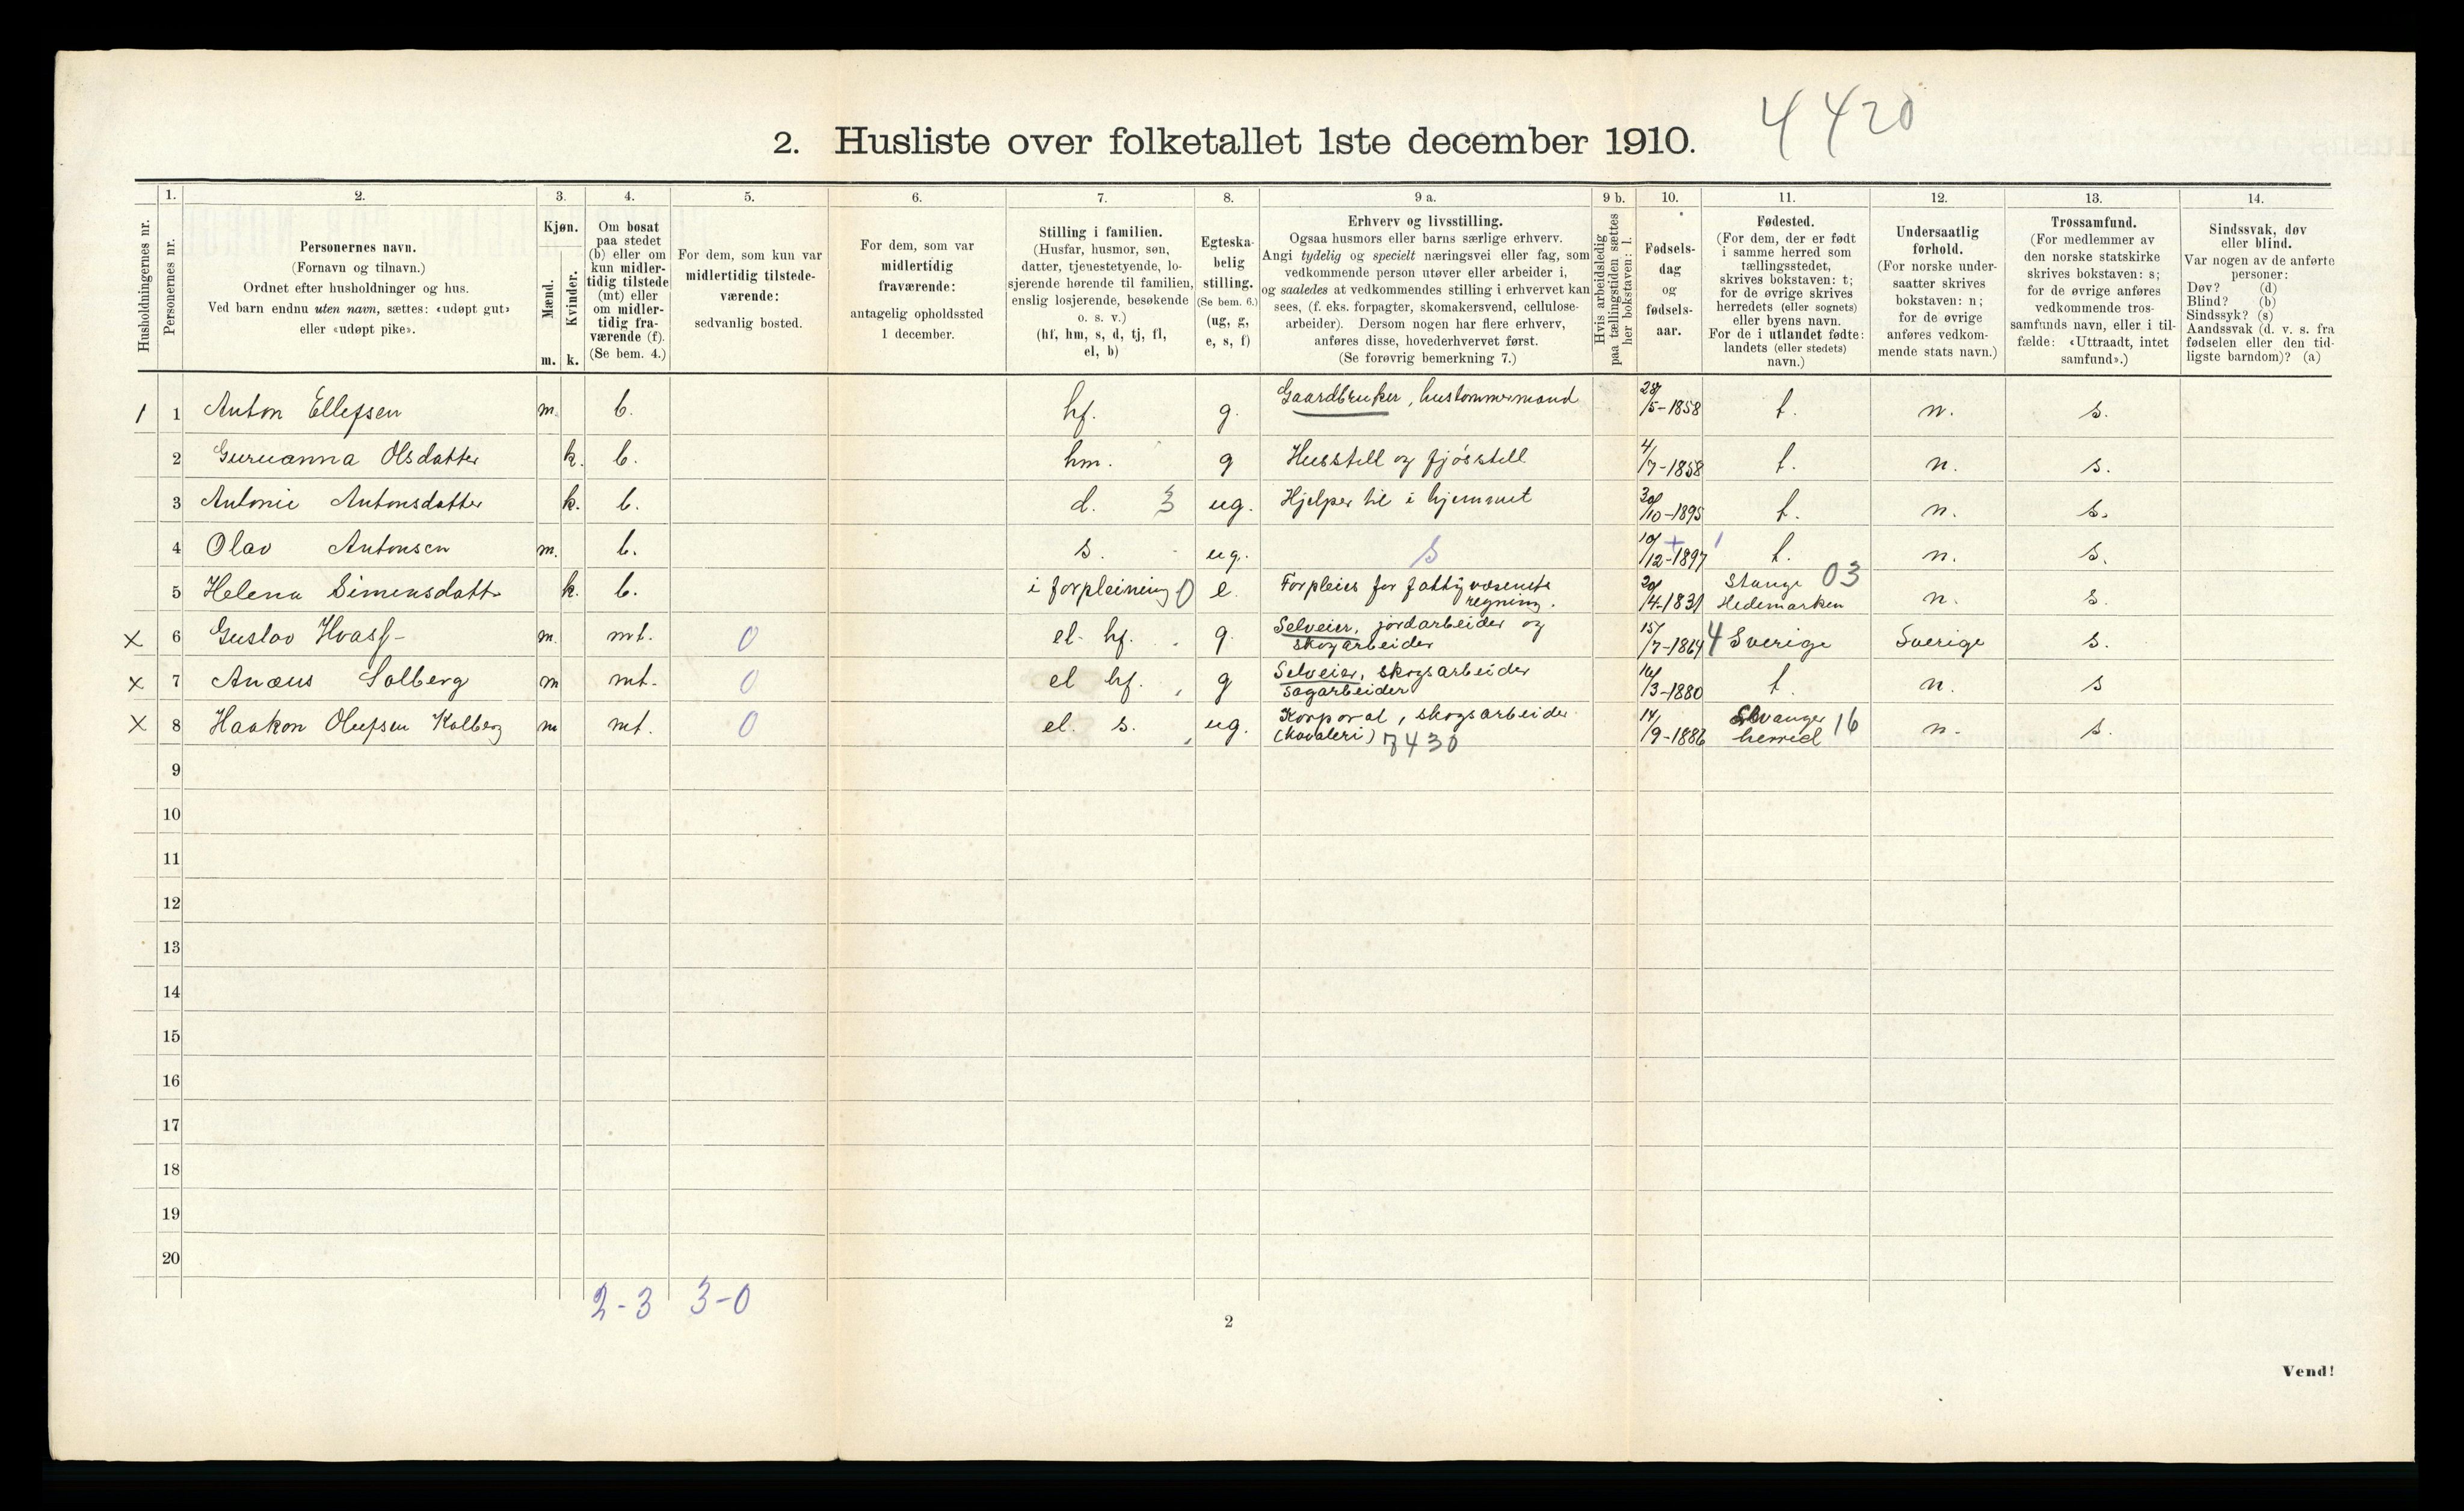 4420
2. Husliste over folketallet 1ste december 1910.
Husholdningernes nr.
1.
Personernes nr.
2.
Personernes navn.
(Fornavn og tilnavn.)
Ordnet efter husholdninger og hus.
Ved barn endnu uten navn, sættes: «udøpt gut»
eller «udøpt pike».
3.
Kjøn.
Mænd.
Kvinder.
m. k.
4.
Om bosat
paa stedet
(b) eller om
kun midler-
tidig tilstede
(mt) eller
om midler-
tidig fra-
værende (f).
(Se bem. 4.)
5.
For dem, som kun var
midlertidig tilstede-
værende:
sedvanlig bosted.
6.
For dem, som var
midlertidig
fraværende:
antagelig opholdssted
1 december.
7.
Stilling i familien.
(Husfar, husmor, søn,
datter, tjenestetyende, lo-
sjerende hørende til familien,
enslig losjerende, besøkende
o. s. v.)
(hf, hm, s, d, tj, fl,
el, b)
8.
Egteska-
belig
stilling.
(Se bem. 6.)
(ug, g,
e, s, f)
9 a.
Erhverv og livsstilling.
Ogsaa husmors eller barns særlige erhverv.
Angi tydelig og specielt næringsvei eller fag, som
vedkommende person utøver eller arbeider i,
og saaledes at vedkommendes stilling i erhvervet kan
sees, (f. eks. forpagter, skomakersvend, cellulose-
arbeider). Dersom nogen har flere erhverv,
anføres disse, hovederhvervet først.
(Se forøvrig bemerkning 7.)
9 b.
Hvis arbeidsledig
paa tællingstiden sættes
her bokstaven: l.
10.
Fødsels-
dag
og
fødsels-
aar.
11.
Fødested.
(For dem, der er født
i samme herred som
tællingsstedet,
skrives bokstaven: t;
for de øvrige skrives
herredets (eller sognets)
eller byens navn.
For de i utlandet fødte:
landets (eller stedets)
navn.)
12.
Undersaatlig
forhold.
(For norske under-
saatter skrives
bokstaven: n;
for de øvrige
anføres vedkom-
mende stats navn.)
13.
Trossamfund.
(For medlemmer av
den norske statskirke
skrives bokstaven: s;
for de øvrige anføres
vedkommende tros-
samfunds navn, eller i til-
fælde: «Uttraadt, intet
samfund».)
14.
Sindssvak, døv
eller blind.
Var nogen av de anførte
personer:
Døv? (d)
Blind? (b)
Sindssyk? (s)
Aandssvak (d. v. s. fra
fødselen eller den tid-
ligste barndom)? (a)
1 1 Anton Ellefsen m. b. hf. g. Gaardbruker, hustømmermand 28/5-1858 t. n. s.
2 Guruanna Olsdatter k. b. hm. g Husstell og fjøsstell 4/7-1858 t. n. s.
3 Antonie Antonsdatter k. b. d. 3 ug. Hjelper til i hjemmet 30/10-1895 t. n. s.
4 Olav Antonsen m. b. s. ug. s 10/12-1897 t. n. s.
5 Helena Simensdatt. k. b. i forpleining 0 e. Forpleies for fattigvæsenets
regning. 20/4-1831 Stange 03
Hedemarken n. s.
x 6 Gustav Hvass- m. mt. 0 el. hf. g. Selveier, jordarbeider og
skogarbeider 15/7-1864 4 Sverige Sverige s.
x 7 Anæus Solberg m mt. 0 el hf. g Selveier, skogsarbeider
sagarbeider 16/3-1880 t. n. s
x 8 Haakon Olufsen Kolberg m mt. 0 el. s. ug. Korporal, skogsarbeider
(kavaleri) 7430 14/9-1886 16
herred n. s.
9
10
11
12
13
14
15
16
17
18
19
20
2-3 3-0
2
Vend!